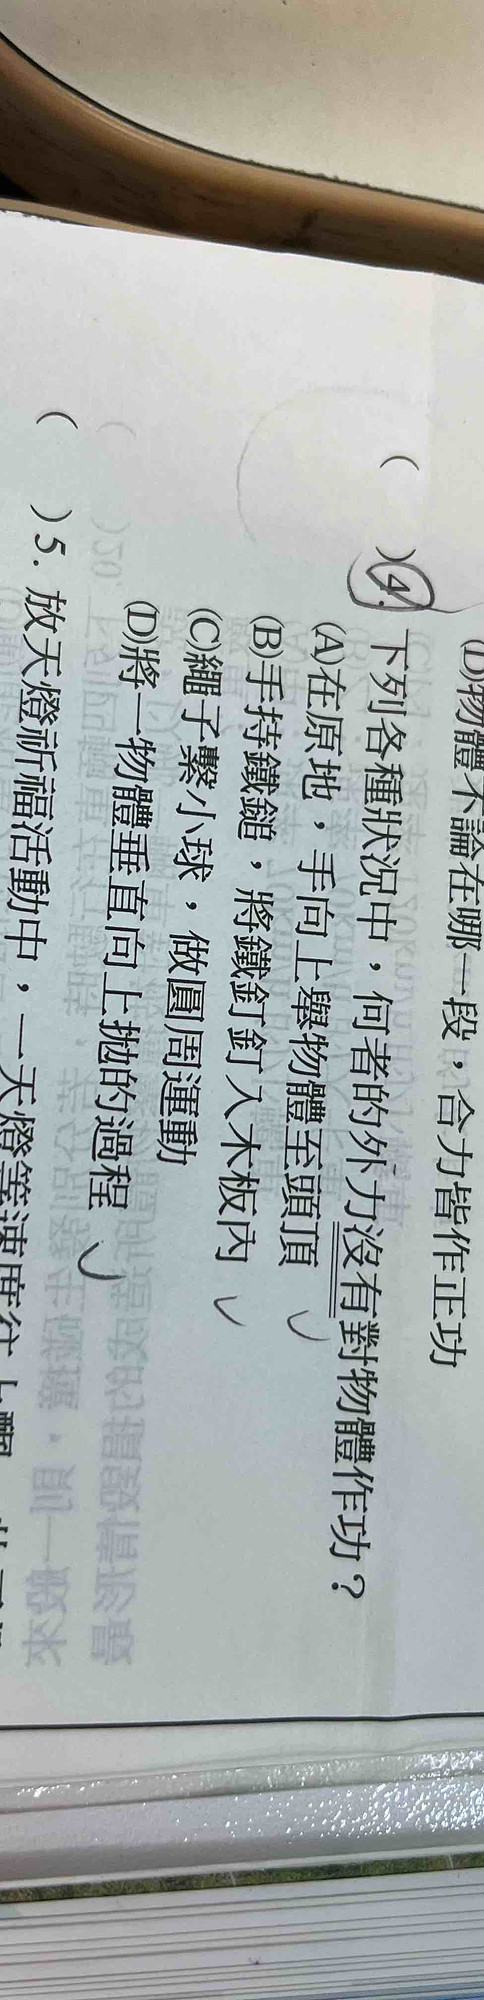 (D)物體不論在哪一段，合力皆作正功
(　)4. 下列各種狀況中，何者的外力沒有對物體作功？
(A)在原地，手向上舉物體至頭頂
(B)手持鐵鎚，將鐵釘釘入木板內
(C)繩子繫小球，做圓周運動
(D)將一物體垂直向上拋的過程
(　)5. 放天燈祈福活動中，一天燈等速度往上飄